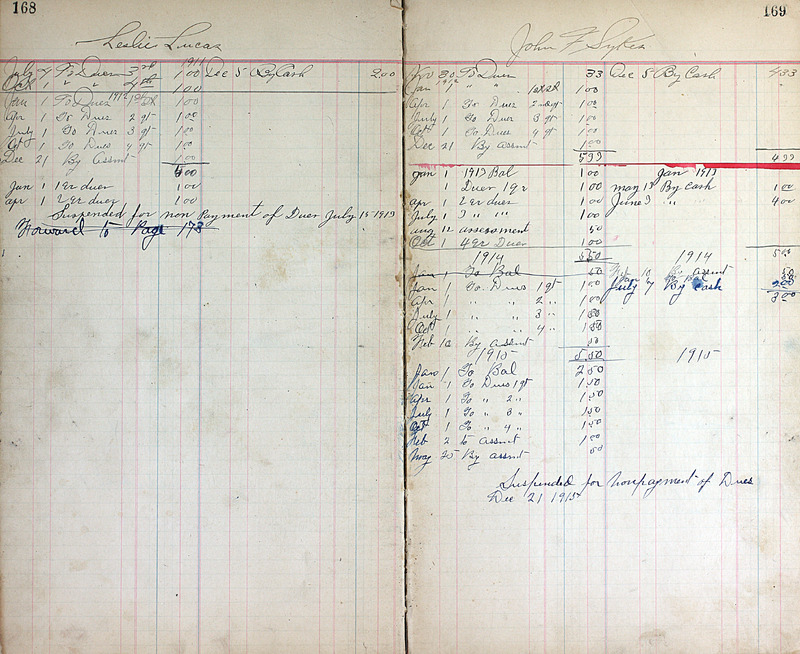 168
Leslie Lucas
1911
July 4 To Dues 3rd 1 00 Dec 5 By Cash 2 00
Oct 1 " " 4th 1 00
Jan 1 To Dues 1912 1st qt 1 00
Apr 1 To Dues 2 qt 1 00
July 1 To Dues 3 qt 1 00
Oct 1 To Dues 4 qt 1 00
Dec 21 By Assmt 1 00
00
Jan 1 1 qr dues 1 00
Apr 1 2 qr dues 1 00
Suspended for non Payment of Dues July 15 1913
Forward to Page 178
169
John F Sykes
30 To Dues 33 Dec 5 By Cash 4 33
Jan 1 1912 " " 1st qt 1 00
Apr 1 To Dues 2nd qt 1 00
July 1 To Dues 3 qt 1 00
Oct 1 To Dues 4 qt 1 00
Dec 21 By assmt 1 00
Jan 1 1913 Bal 1 00 Jan 1913
1 Dues 1 qr 1 00 May By Cash 1 00
Apr 1 2 qr dues 1 00 June 3 " " 4 00
July 1 3 " " 1 00
Aug 12 assessment 50
Oct 1 4 qr Dues 1 00
1914 5 50 1914
Jan 1 To Bal 50 Feb 10 By assmt 50
Jan 1 To Dues 1 qt 1 00 July 7 By Cash
Apr 1 " " 2 " 1 00 3 00
July 1 " " 3 "
Oct 1 " " 4 "
Feb 10 By assmt
1915 5.50 1915
Jan 1 To Bal 2 50
Jan 1 To Dues 1 qt 1 50
Apr 1 To " 2 " 1 50
July 1 To " 3 " 1 50
Oct 1 To " 4 " 1 50
Feb 2 to assmt 1 00
May 25 By assmt
Suspended for Nonpayment of Dues
Dec 21 1915